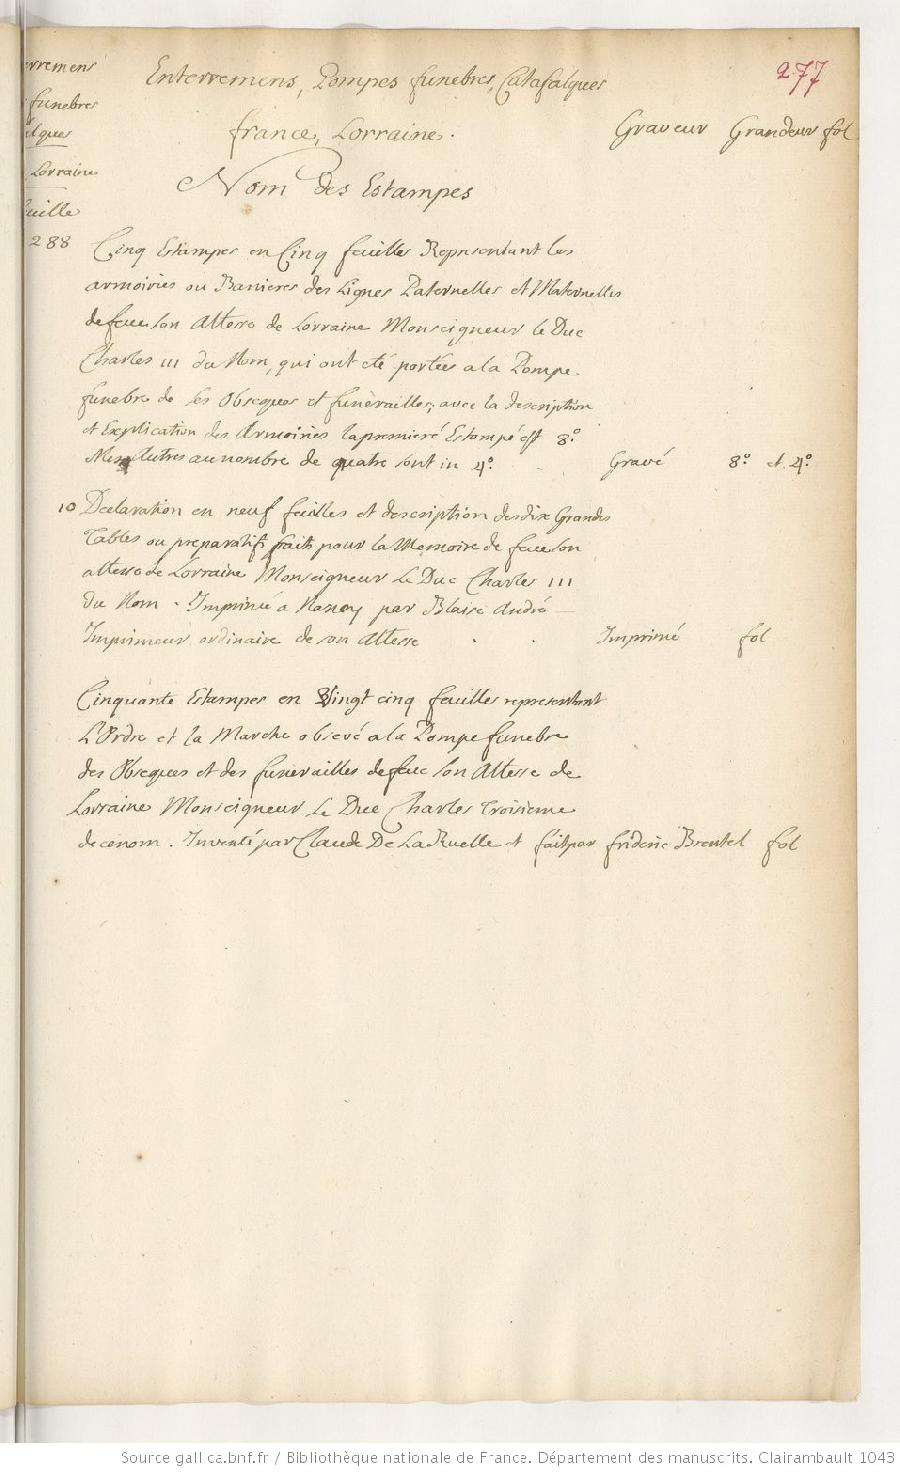 277
Enterremens, Pompes funebres, Catafalques
france, Lorraine.
Graveur Grandeur fol
Nom des Estampes
erremens
funebres
alques
Lorraine
euille
288
Cinq Estampes en Cinq feuilles Representant les
armoiries ou Banieres des Lignes Paternelles et Maternelles
de feue son Altesse de Lorraine Monseigneur le Duc
Charles III du Nom, qui ont eté portées a la Pompe
funebre de ses Obseques et funèrailles, avec la description
et Explication des Armoiries la premiere Estampe est 8.º
les Autres au nombre de quatre sont in 4.º Gravé 8.º et 4.º
10 Declaration en neuf feuilles et description des dix Grandes
Tables ou preparatifs faits pour la Memoire de feue son
altesse de Lorraine Monseigneur Le Duc Charles III
du Nom. Imprimée a Nancy par Blaise André
Imprimeur ordinaire de son Altesse . . Imprimé fol
Cinquante Estampes en Vingt cinq feuilles representant
L'Ordre et la Marche observé a la Pompe funebre
des Obseques et des funerailles de feue son Altesse de
Lorraine Monseigneur Le Duc Charles Troisieme
de ce nom. Inventé par Claude De La Ruelle et fait par frideric Brentel fol
Source gallica.bnf.fr / Bibliothèque nationale de France. Département des manuscrits. Clairambault 1043